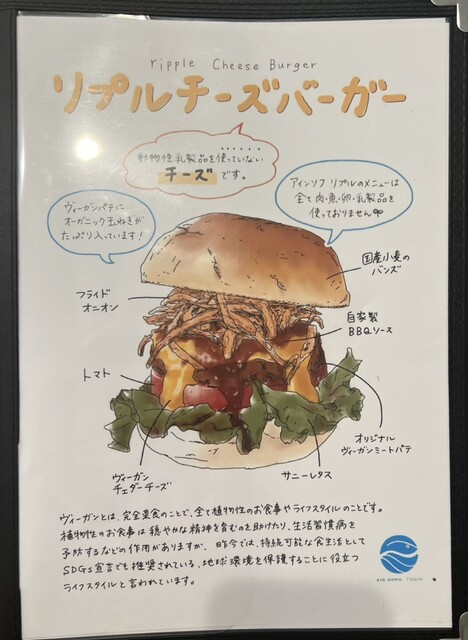 ripple Cheese Burger
リプルチーズバーガー
動物性乳製品を使っていない
チーズです。
アインソフ リプルのメニューは
全て肉・魚・卵・乳製品を
使っておりません
ヴィーガンパテに
オーガニック玉ねぎが
たっぷり入っています!
国産小麦の
バンズ
フライド
オニオン
自家製
BBQソース
トマト
オリジナル
ヴィーガンミートパテ
ヴィーガン
チェダーチーズ
サニーレタス
ヴィーガンとは、完全菜食のことで、全て植物性のお食事やライフスタイルのことです。
植物性のお食事は穏やかな精神を育むのを助けたり、生活習慣病を
予防するなどの作用がありますが、昨今では、持続可能な食生活として
SDGs宣言でも推奨されている、地球環境を保護することに役立つ
ライフスタイルと言われています。
AIN SOPH. ripple